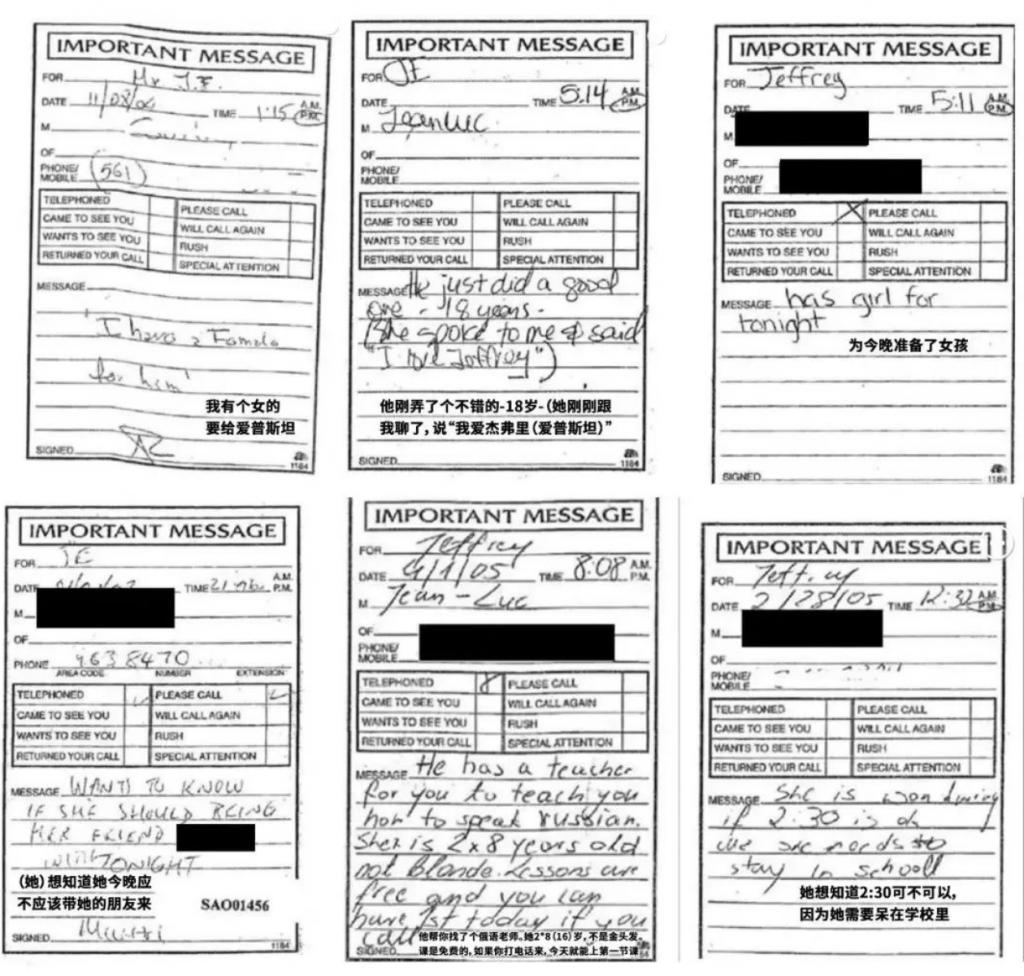 IMPORTANT MESSAGE
FOR Mr. J.E.
DATE 11/08/04 TIME 1:15 A.M. P.M.
M
OF
PHONE/ MOBILE (561)
TELEPHONED PLEASE CALL
CAME TO SEE YOU WILL CALL AGAIN
WANTS TO SEE YOU RUSH
RETURNED YOUR CALL SPECIAL ATTENTION
MESSAGE
"I have a Female
for him"
我有个女的
要给爱普斯坦
SIGNED
1184
IMPORTANT MESSAGE
FOR JE
DATE TIME 5:14 A.M. P.M.
M Jean Luc
OF
PHONE/ MOBILE
TELEPHONED PLEASE CALL
CAME TO SEE YOU WILL CALL AGAIN
WANTS TO SEE YOU RUSH
RETURNED YOUR CALL SPECIAL ATTENTION
MESSAGE He just did a good
one - 18 years -
(She spoke to me & said
"I love Jeffrey")
他刚弄了个不错的-18岁-(她刚刚跟
我聊了,说“我爱杰弗里(爱普斯坦)”
SIGNED
1184
IMPORTANT MESSAGE
FOR Jeffrey
DATE TIME 5:11 A.M. P.M.
M
OF
PHONE/ MOBILE
TELEPHONED PLEASE CALL
CAME TO SEE YOU WILL CALL AGAIN
WANTS TO SEE YOU RUSH
RETURNED YOUR CALL SPECIAL ATTENTION
MESSAGE has girl for
tonight
为今晚准备了女孩
SIGNED
1184
IMPORTANT MESSAGE
FOR JE
DATE TIME A.M. P.M.
M
OF
PHONE 963 8470
AREA CODE NUMBER EXTENSION
TELEPHONED PLEASE CALL
CAME TO SEE YOU WILL CALL AGAIN
WANTS TO SEE YOU RUSH
RETURNED YOUR CALL SPECIAL ATTENTION
MESSAGE WANTS TO KNOW
IF SHE SHOULD BRING
HER FRIEND
WITH TONIGHT
(她)想知道她今晚应
不应该带她的朋友来
SAO01456
SIGNED
1184
IMPORTANT MESSAGE
FOR Jeffrey
DATE 4/1/05 TIME 8:08 A.M. P.M.
M Jean-Luc
OF
PHONE/ MOBILE
TELEPHONED PLEASE CALL
CAME TO SEE YOU WILL CALL AGAIN
WANTS TO SEE YOU RUSH
RETURNED YOUR CALL SPECIAL ATTENTION
MESSAGE He has a teacher
for you to teach you
how to speak russian.
She is 2x8 years old
not blonde. Lessons are
free and you can
have 1st today if you
call
他帮你找了个俄语老师。她2*8(16)岁,不是金头发。
课是免费的,如果你打电话来,今天就能上第一节课
SIGNED
IMPORTANT MESSAGE
FOR Jeffrey
DATE 2/28/05 TIME 12:32 A.M. P.M.
M
OF
PHONE/ MOBILE
TELEPHONED PLEASE CALL
CAME TO SEE YOU WILL CALL AGAIN
WANTS TO SEE YOU RUSH
RETURNED YOUR CALL SPECIAL ATTENTION
MESSAGE She is wondering
if 2:30 is ok
she needs to
stay in school
她想知道2:30可不可以,
因为她需要呆在学校里
SIGNED
1184